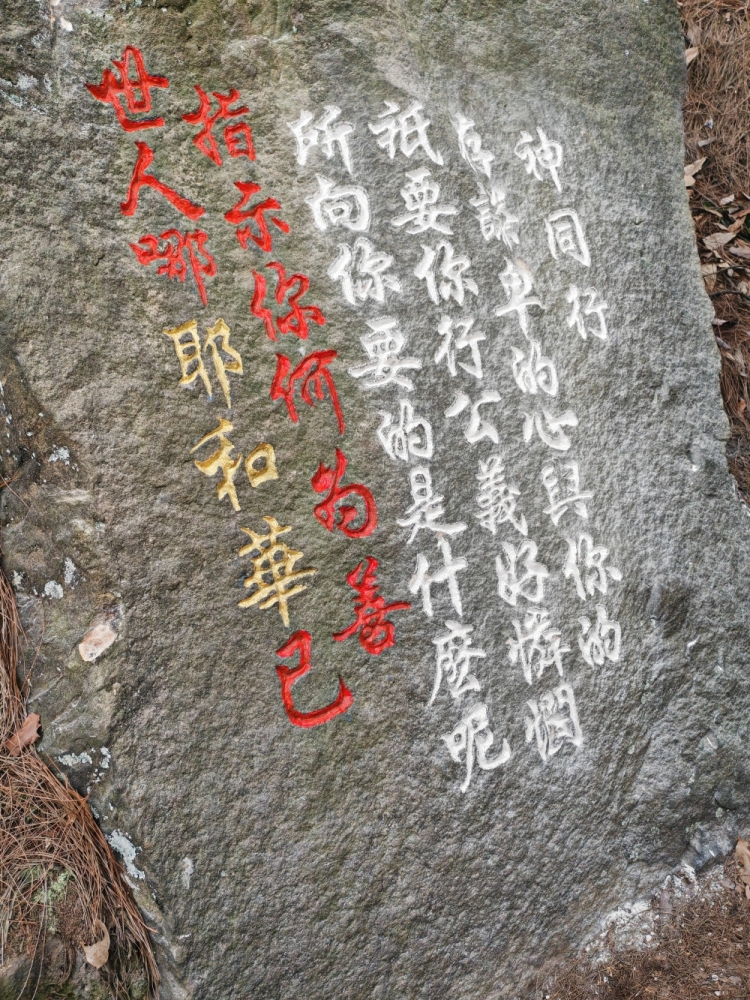 世人哪耶和華已
指示你何為善
所向你要的是什麼呢
祗要你行公義好憐憫
存謙卑的心與你的
神同行